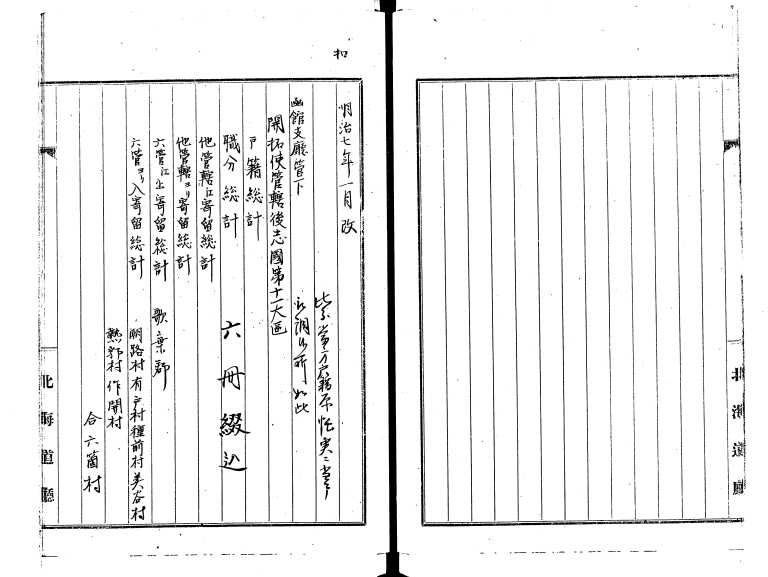 扣
明治七年一月改
函館支廳管下
開拓使管轄後志國第十一大區
戸籍総計
職分総計
他管轄江寄留総計
他管轄ヨリ寄留総計
六管江出寄留総計
六管ヨリ入寄留総計
六冊綴込
歌棄郡
潮路村有戸村種前村美谷村
熱郛村作開村
合六箇村
北海道廳
北海道廳